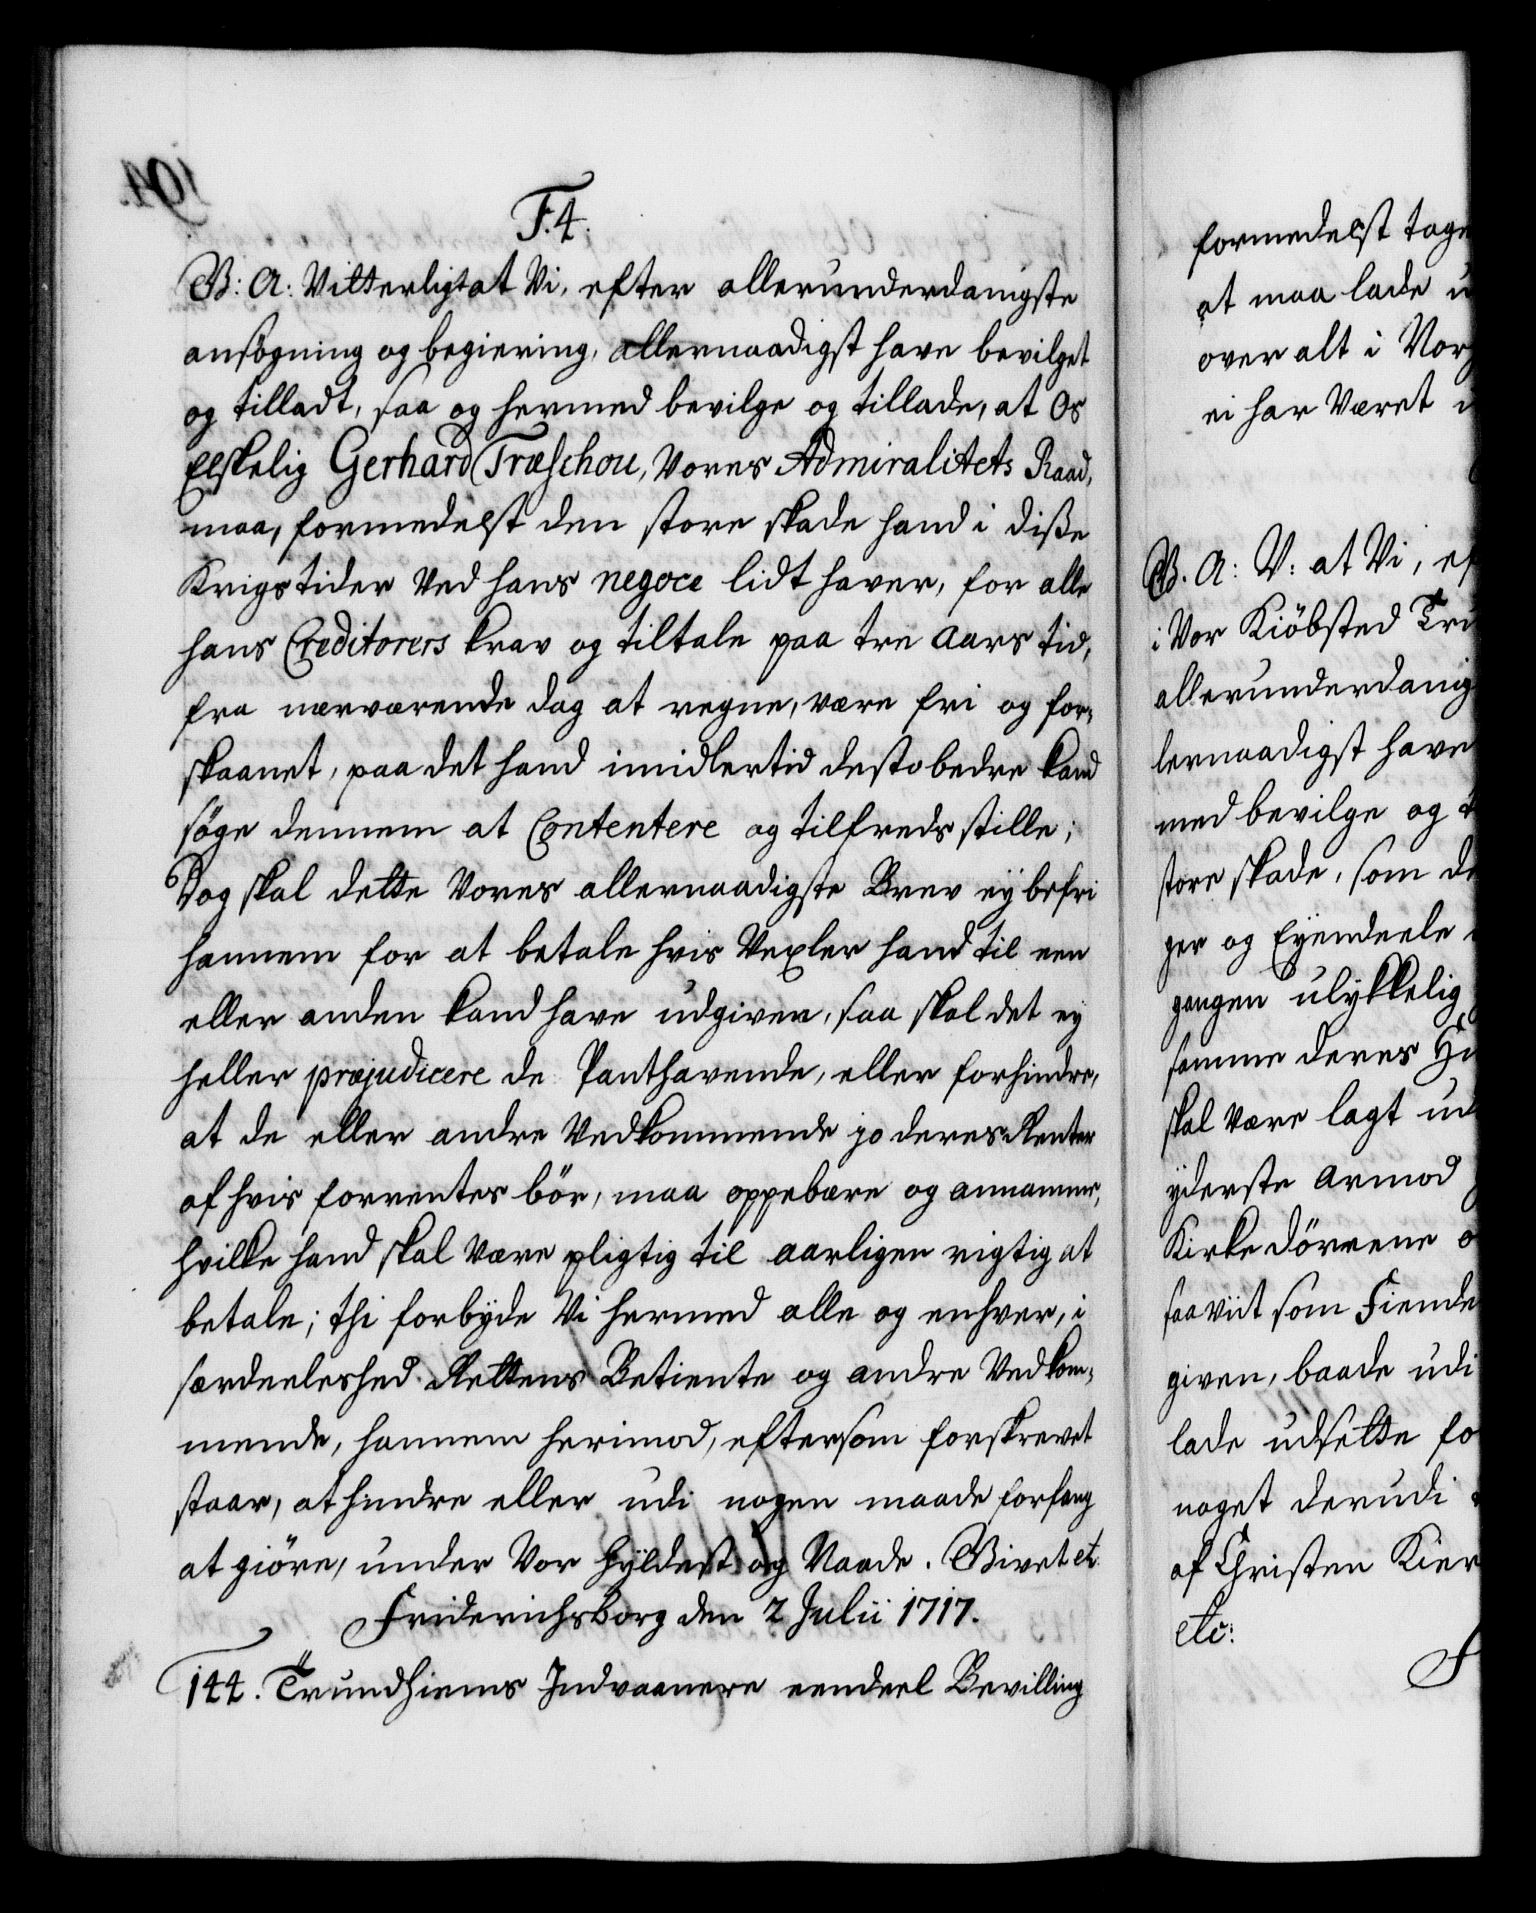 F. 4.
G: A: Vitterligt at Vi, efter allerunderdanigste
ansögning og begiering, allernaadigst have bevilget
og tilladt, saa og hermed bevilge og tillade, at Os
Elskelig Gerhard Træschou, Vores Admiralitets Raad,
maa, formedelst den store skade hand i diße
Krigstider ved hans negoce lidt haver, for alle
hans Creditorers krav og tiltale paa tre aars tid,
fra nærværende dag at regne, være fri og for-
skaanet, paa det hand imidlertid desto bedre kand
söge dennem at Contentere og tilfreds stille;
Dog skal dette Vores allernaadigste Brev ey befri
hannem for at betale hvis Vexler hand til een
eller anden kand have udgiven, saa skal det ey
heller præjudicere de Panthavende, eller forhindre,
at de eller andre Vedkommende jo deres Renter
af hvis forrentes bör, maa oppebære og annamme,
hvilke hand skal være pligtig til aarligen rigtig at
betale; thi forbyde Vi hermed alle og enhver, i
særdeeleshed Rettens Betiente og andre Vedkom-
mende, hannem herimod, eftersom forskrevet
staar, at hindre eller udi nogen maade forfang
at giöre, under Vor Hyldest og Naade. Givet etc
Friderichsborg den 2 Julii 1717.
144. Trundhiems Indvaanere eendeel Bevilling
formedelst
at maa lade
over alt i
ei har været
G. A: V: at Vi,
i Vor Kiöbsted
allerunderdanig
lernaadigst have
med bevilge og
store skade, som
ger og Eyendeele
gangen ulykkelig
samme deres
skal være lagt
yderste armod
Kirkedörrene
saa viit som Fiende
given, baade udi
lade udsette
noget derudi
af Christen Kier
etc: